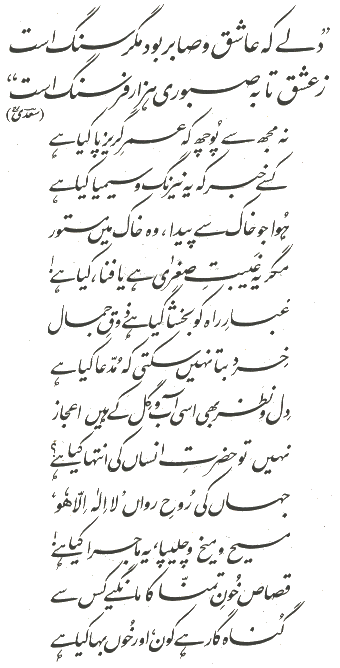 ”دلے کہ عاشق و صابر بود مگر سنگ است
ز عشق تا بہ صبوری ہزار فرسنگ است“
(سعدیؒ)
نہ مجھ سے پُوچھ کہ عمرِ گریز پا کیا ہے
کسے خبر کہ یہ نیرنگ و سیمیا کیا ہے
ہُوا جو خاک سے پیدا، وہ خاک میں مستور
مگر یہ غَیبتِ صغریٰ ہے یا فنا، کیا ہے!
غبارِ راہ کو بخشا گیا ہے ذوقِ جمال
خِرد بتا نہیں سکتی کہ مُدّعا کیا ہے
دل و نظر بھی اسی آب و گِل کے ہیں اعجاز
نہیں تو حضرتِ انساں کی انتہا کیا ہے؟
جہاں کی رُوحِ رواں ’لا اِلٰہَ اِلّا ھُوْ‘،
مسیح و میخ و چلیپا، یہ ماجرا کیا ہے!
قصاص خُونِ تمنّا کا مانگیے کس سے
گُناہ گار ہے کون، اور خُوں بہا کیا ہے